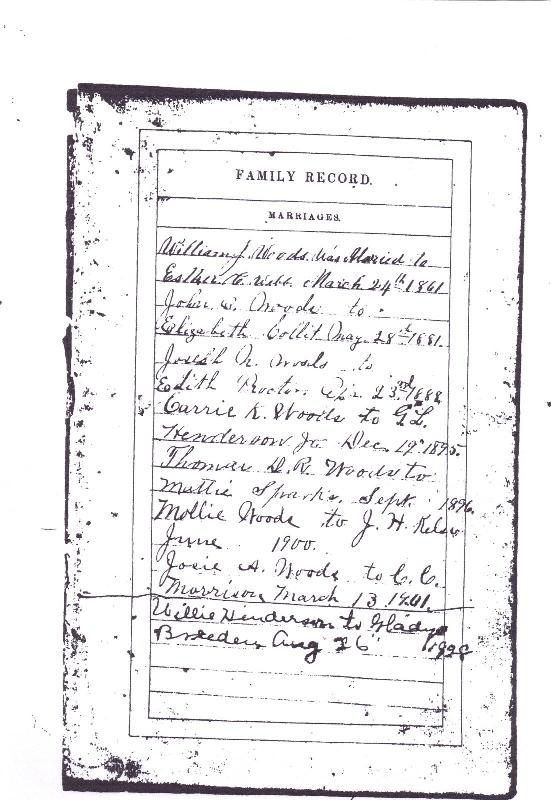 FAMILY RECORD.
MARRIAGES.
William J. Woods. was Maried to
Esther E. Webb. March 24th 1861
John W. Woods to
Elizabeth Collit May. 28th 1881.
Joseph N. Woods to
Edith Proctor. Apr. 23rd, 1888,
Carrie K. Woods to G.L.
Henderson Jr. Dec. 19" 1895.
Thomas D. R. Woods to
Mattie Sparks. Sept. 1896.
Mollie Woods to J. H. Kelso
June 1900.
Josie A. Woods to C. C.
Morrison March 13 1901.
Willie Henderson to Gladys
Breeden Aug 26